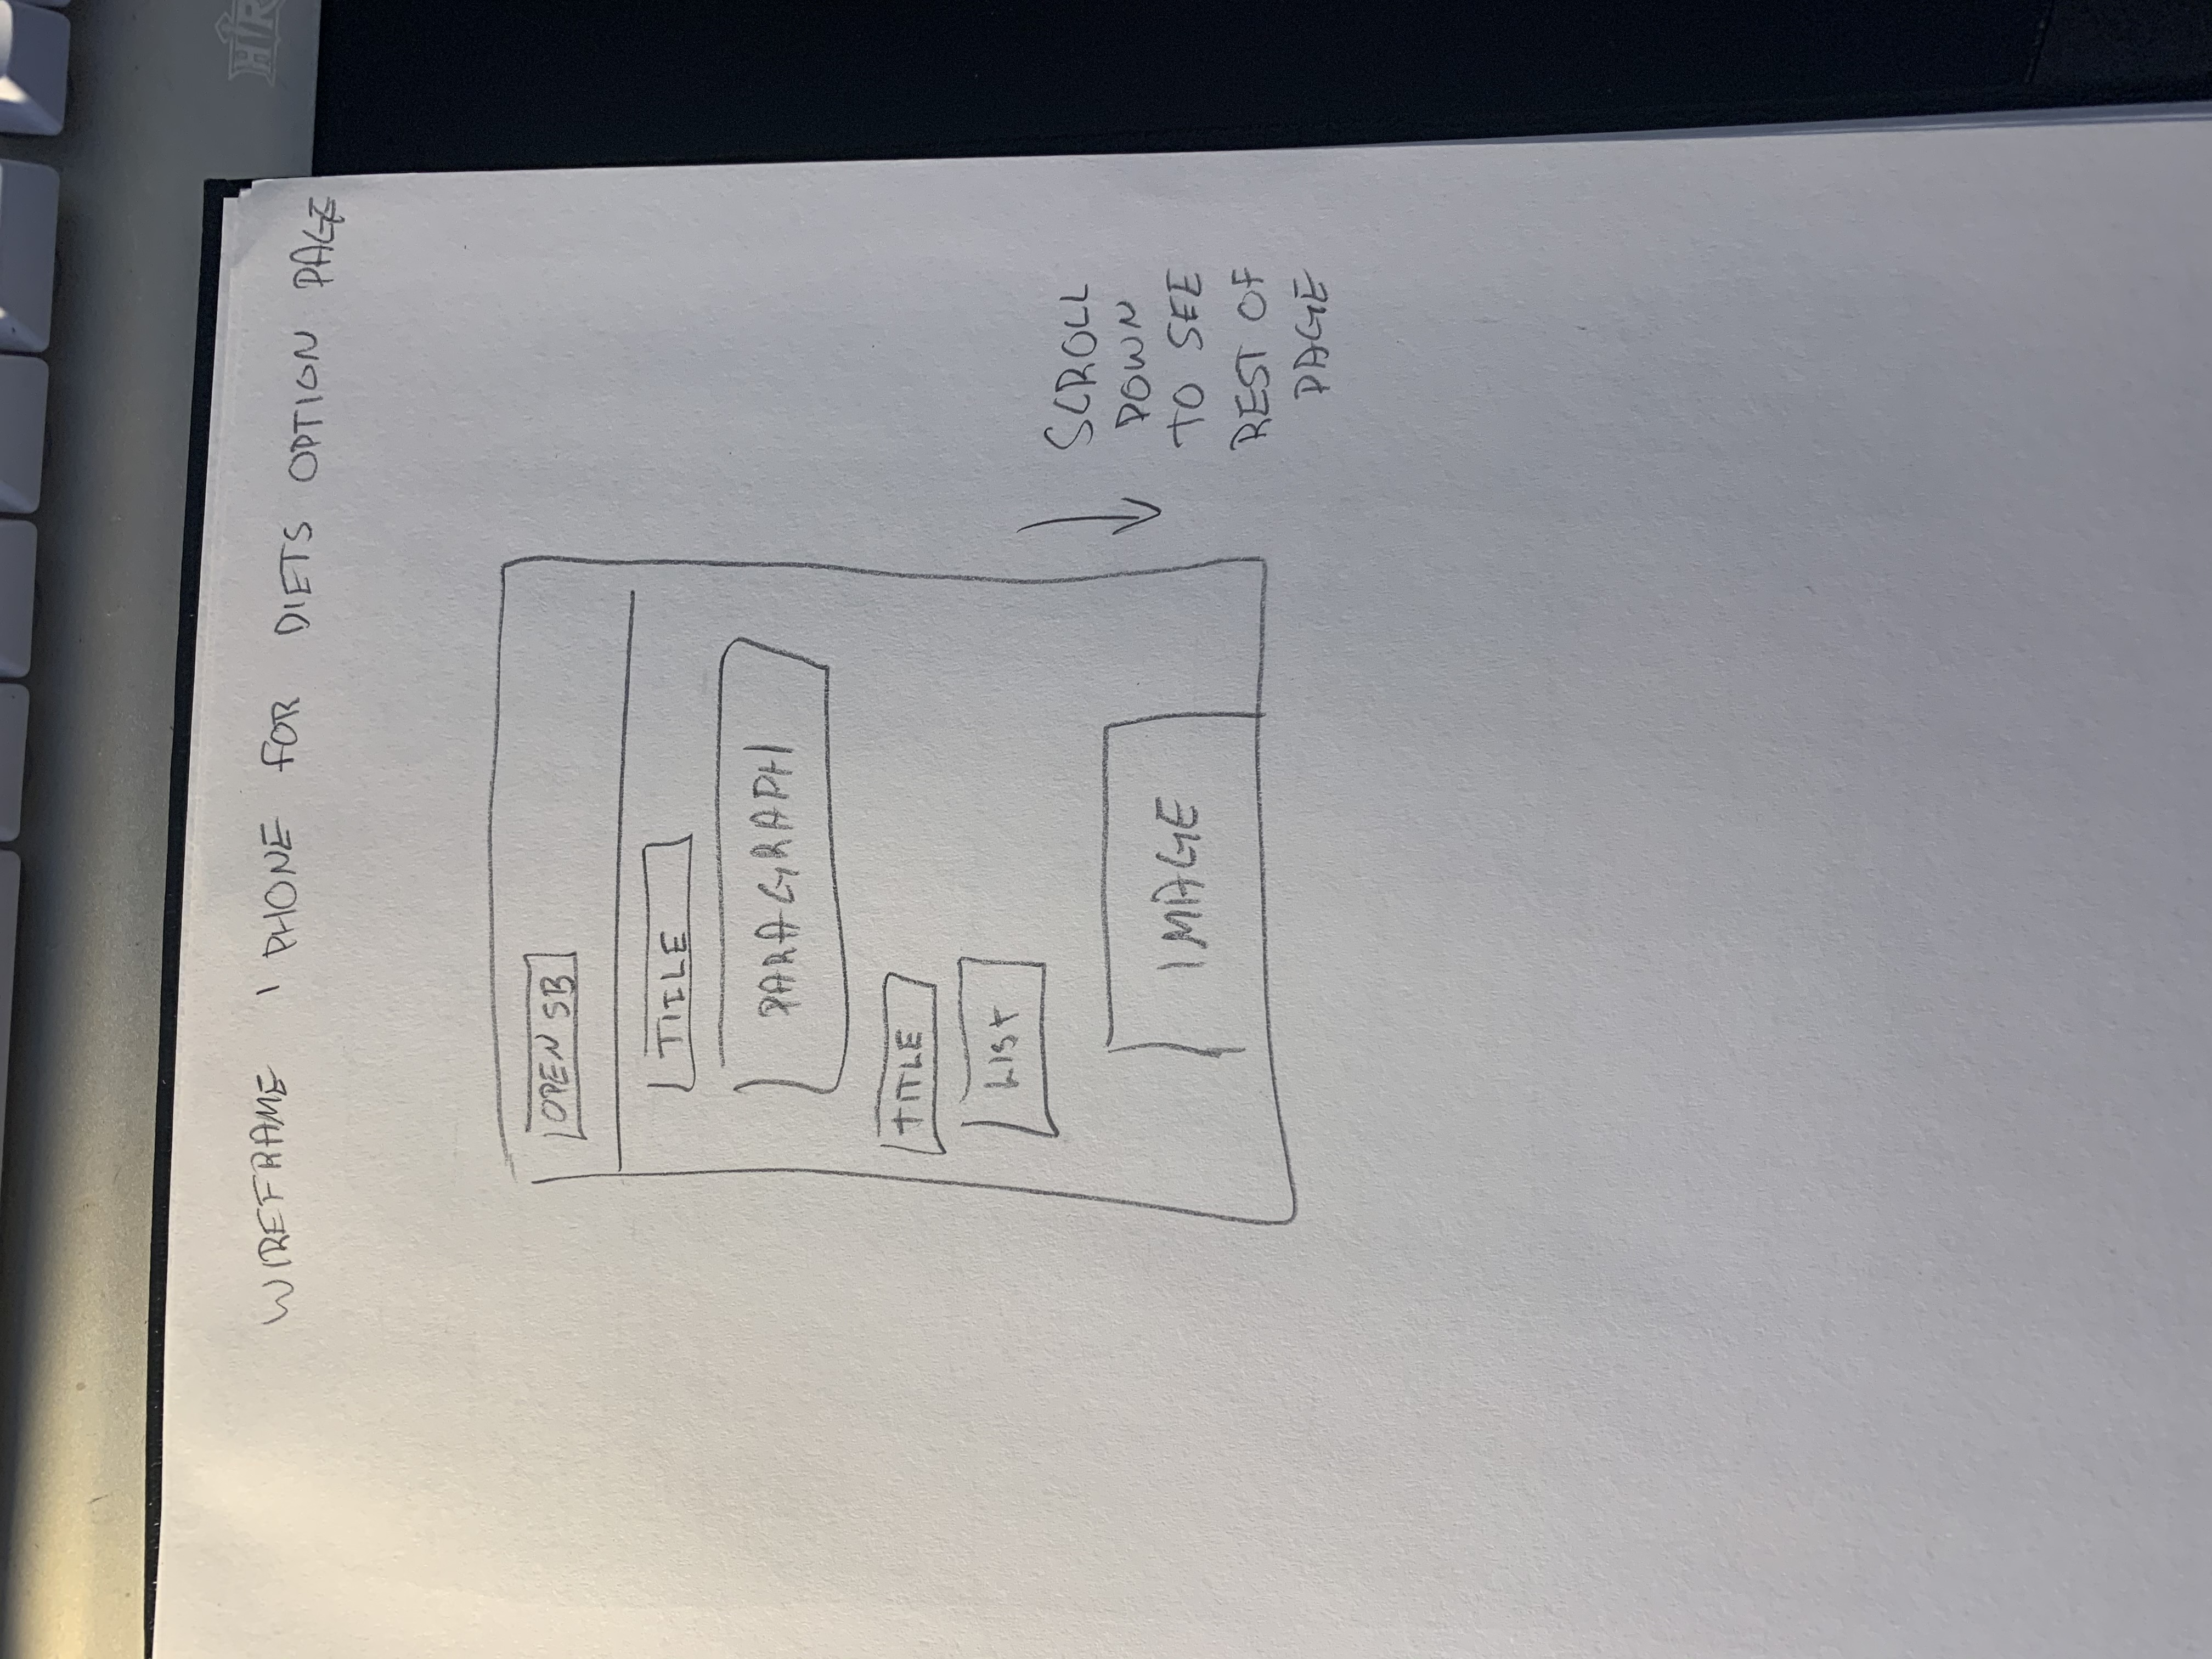 WIREFRAME IPHONE FOR DIETS OPTION PAGE
OPEN SB
TITLE
PARAGRAPH
TITLE
LIST
IMAGE
SCROLL
DOWN
TO SEE
REST OF
PAGE